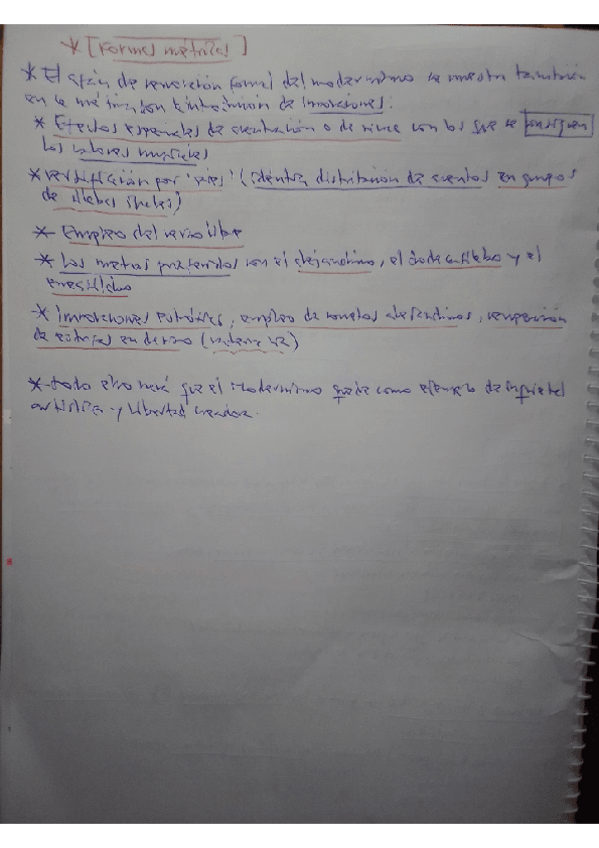 * [Formas métricas]
* El afán de renovación formal del modernismo se muestra también
en la métrica, con introducción de innovaciones:
* Efectos especiales de acentuación o de ritmo con los que se consiguen
los valores musicales
* versificación por 'pies' (idéntica distribución de acentos en grupos
de sílabas)
* Empleo del verso libre
* Los metros preferidos son el alejandrino, el dodecasílabo y el
eneasílabo
* Innovaciones estróficas, empleo de sonetos alejandrinos,
de estrofas en desuso
* todo ello hará que el Modernismo quede como ejemplo de inquietud
artística y libertad creadora.